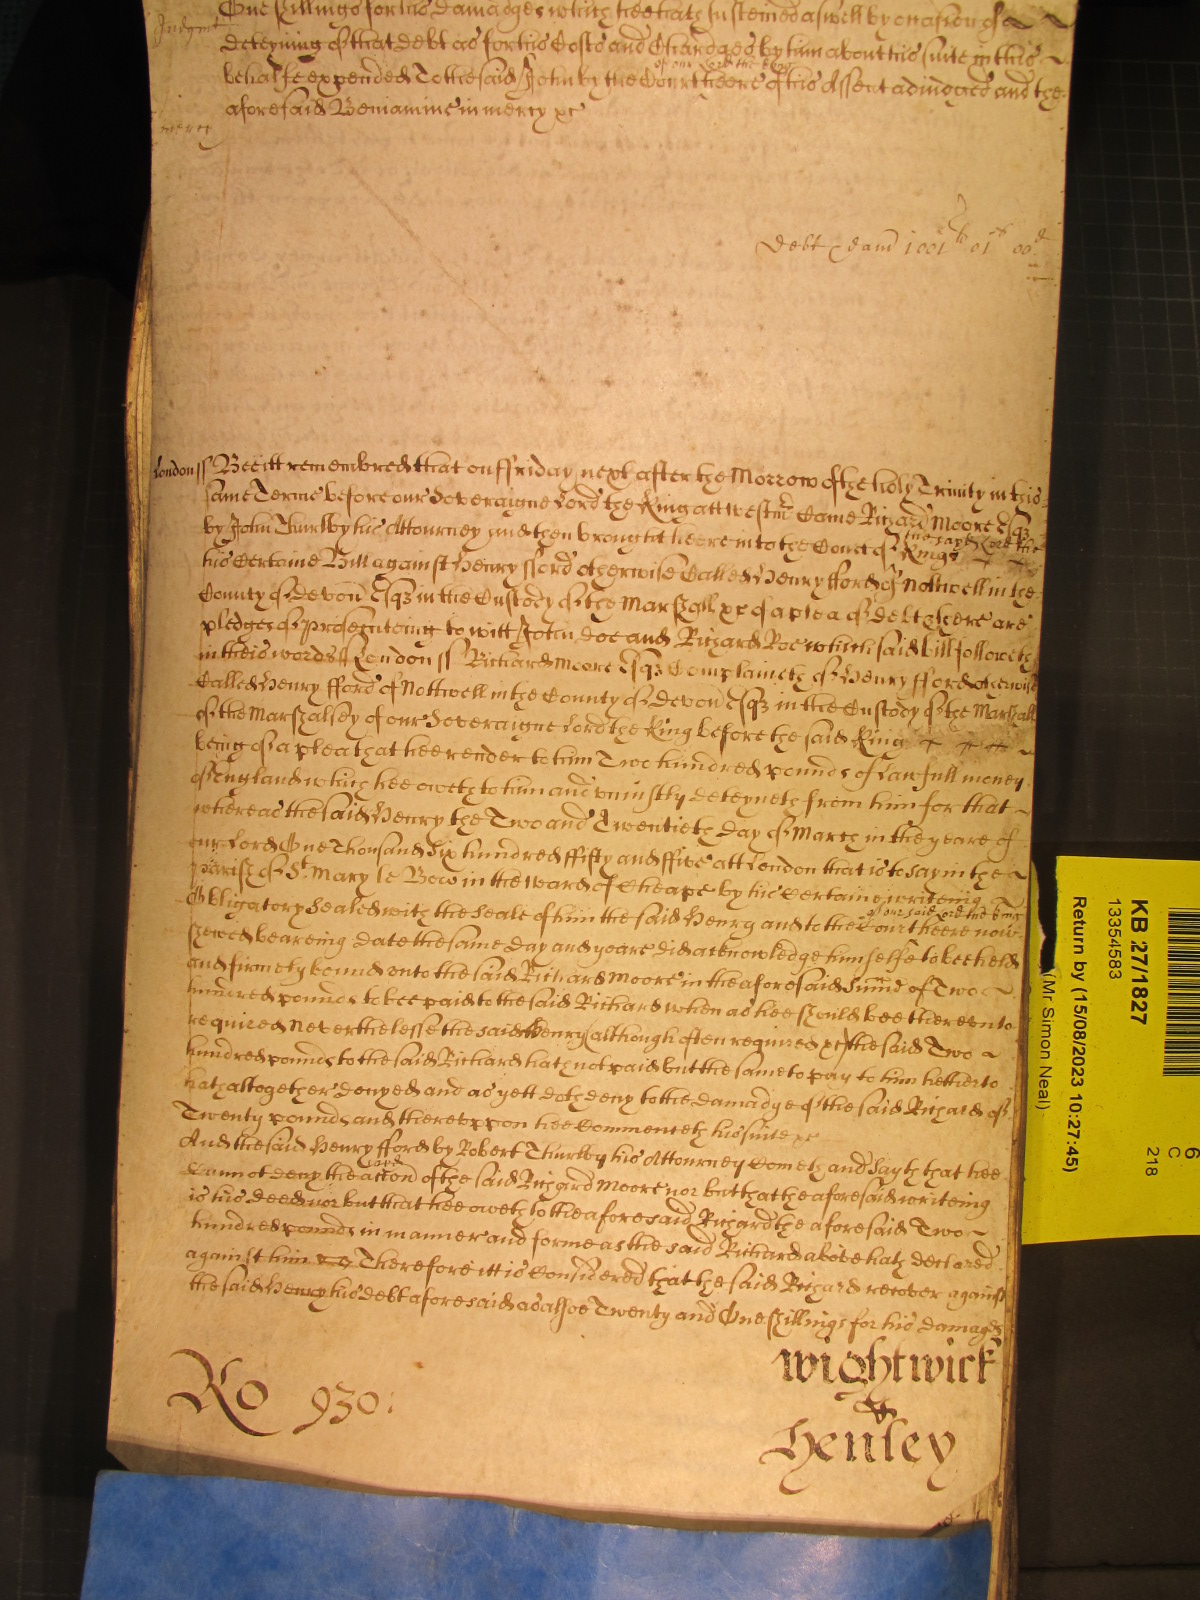 Judgmt
One shillings for his damadges which hee hath susteined aswell by occasion of ~ ~
deteyning of that debt as for his Costs and Chardges by him about his suite in this ~
of our Lord the King
behalfe expended To the said John by the Court heere of his Assent adiudged and the
aforesaid Beniamine in mercy xc
mercy
Debt & dam 1001li 01s 00d
London ss Bee itt remembred that on ffriday next after the Morrow of the holy Trinity in this
same Terme before our Soveraigne Lord the King att Westmr Came Richard Moore Esqz
by John Thurlby his Attourney and then brought heere into the Court of
Kings
his Certaine Bill against Henry fford otherwise Called Henry fford of Nottwell in the
County of Devon Esqz in the Custody of the Marshall xc of a plea of debt & here are
pledges of prosecuteing to witt John Doe and Richard Roe which said bill followeth
in theis words ss London ss Richard Moore Esqz Complaineth of Henry fford otherwise
Called Henry fford of Nottwell in the County of Devon Esqz in the Custody of the Marshall
of the Marshalsey of our Soveraigne Lord the King before the said King
being of a plea that hee render to him Two hundred pounds of Lawfull money
of England which hee oweth to him and uniustly deteyneth from him for that ~
whereas the said Henry the Two and Twentieth day of March in the yeare of
our Lord One Thousand Six hundred ffifty and ffive att London that is to say in the ~
parish of St Mary le Bow in the ward of Cheape by his Certaine writeing ~
of our said Lord the King
Obligatory Sealed with the Seale of him the said Henry and to the Court heere now
shewed beareing date the same day and yeare did acknowledge himselfe to bee held
and firmely bound unto the said Richard Moore in the aforesaid Summe of Two ~
hundred pounds to bee paid to the said Richard when as hee should bee thereunto
required Neverthelesse the said Henry (although often required xc) the said Two ~
hundred pounds to the said Richard hath not paid but the same to pay to him hetherto
hath altogether denyed and as yett doth deny to the damadge of the said Richard of
Twenty pounds and thereuppon hee Commenceth his suite xc
And the said Henry fford by Robert Thurlby his Attourney Cometh and sayth that hee
Cannot deny the accon of the said Richard Moore nor but that the aforesaid writeing
is his deed nor but that hee oweth to the aforesaid Richard the aforesaid Two ~
hundred pounds in manner and forme as the said Richard above hath declared
against him Therefore itt is Considered that the said Richard recover against
the said Henry his debt aforesaid as alsoe Twenty and One shillings for his damages
Wightwick
&
Henley
Ro 930:
KB 27/1827
13354583
Return by (15/08/2023 10:27:45)
(Mr Simon Neal)
6
C
218